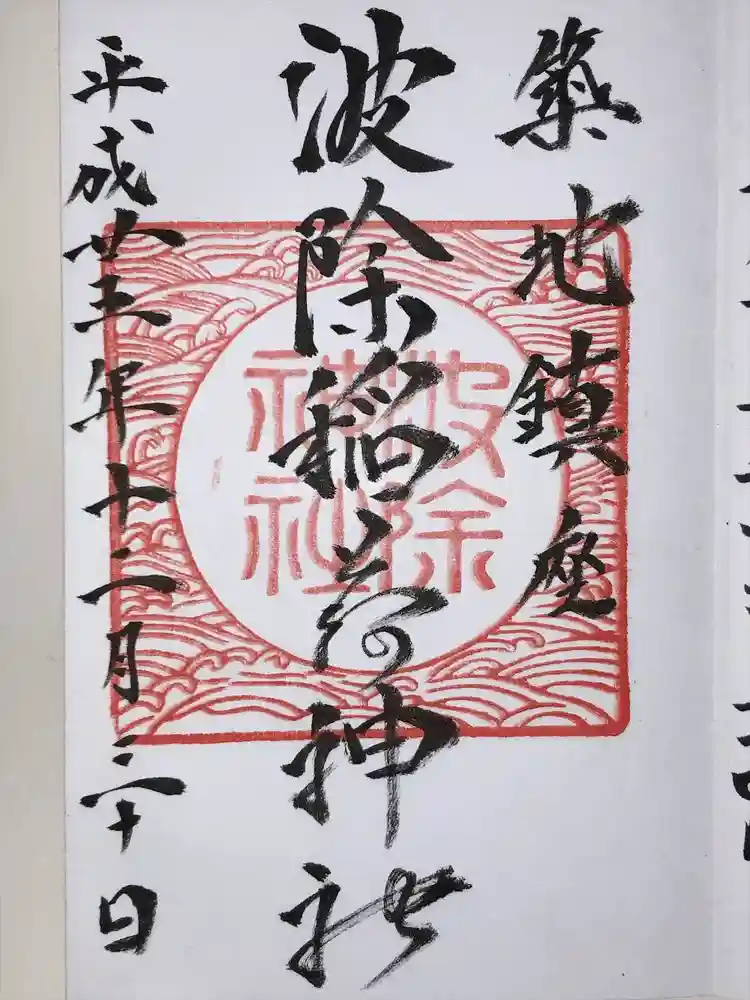 築地鎮座
波除稲荷神社
波除
神社
平成廿五年十二月三十日